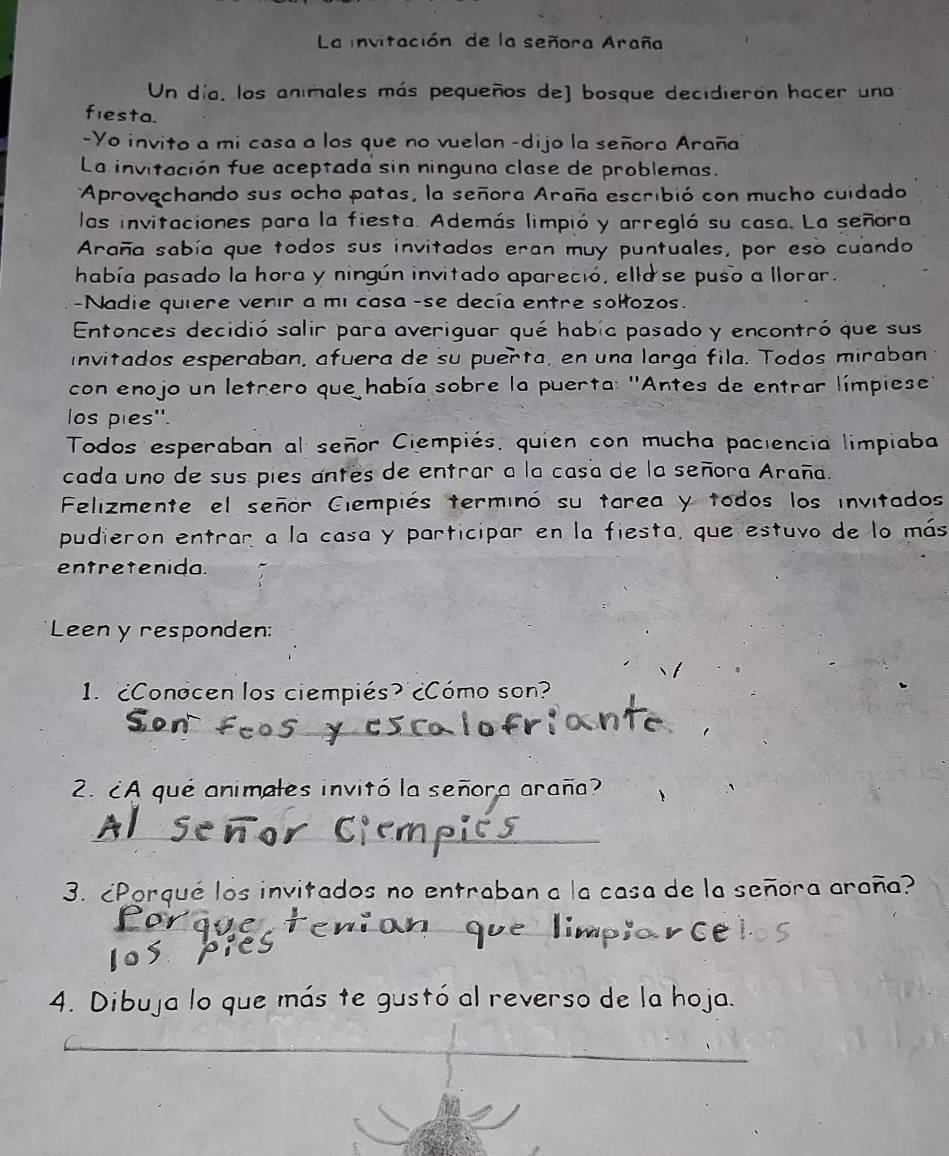 La invitación de la señora Araña
Un día, los animales más pequeños de] bosque decidieron hacer una
fiesta.
-Yo invito a mi casa a los que no vuelan -dijo la señora Araña
La invitación fue aceptada sin ninguna clase de problemas.
Aprovechando sus ocho patas, la señora Araña escribió con mucho cuidado
las invitaciones para la fiesta. Además limpió y arregló su casa. La señora
Araña sabía que todos sus invitados eran muy puntuales, por eso cuando
había pasado la hora y ningún invitado apareció, ella se puso a llorar.
-Nadie quiere venir a mi casa -se decía entre sollozos.
Entonces decidió salir para averiguar qué había pasado y encontró que sus
invitados esperaban, afuera de su puerta, en una larga fila. Todos miraban
con enojo un letrero que había sobre la puerta: "Antes de entrar límpiese
los pies".
Todos esperaban al señor Ciempiés, quien con mucha paciencia limpiaba
cada uno de sus pies antes de entrar a la casa de la señora Araña.
Felizmente el señor Ciempiés terminó su tarea y todos los invitados
pudieron entrar a la casa y participar en la fiesta, que estuvo de lo más
entretenida.
Leen y responden:
1. ¿Conocen los ciempiés? ¿Cómo son?
Son feos y escalofriante
2. ¿A qué animales invitó la señora araña?
Al señor Ciempies
3. ¿Porqué los invitados no entraban a la casa de la señora araña?
Porque tenian que limpiarcelos
los pies
4. Dibuja lo que más te gustó al reverso de la hoja.